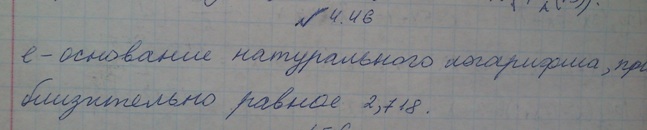 № 4.46
e - основание натурального логарифма, при
близительно равное 2,718.